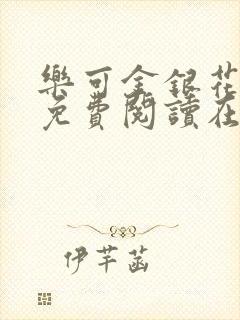 樂可金銀花
免費閱讀在
伊芊菡